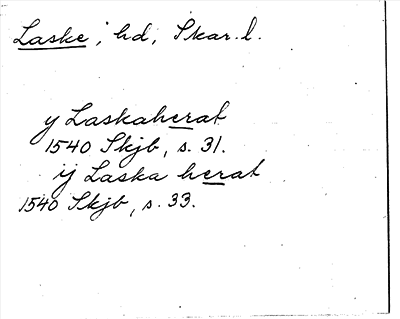 Laske, hd, Skar. l.
y Laskaherat
1540 Skjb, s. 31.
ij Laska herat
1540 Skjb, s. 33.